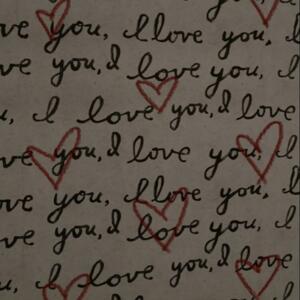 ve you, I love you,
ve you, I love you,
u, I love you, I love
ve you, I love you, I
ove you, I love you,
ve you, I love you, I
u, I love you, I love